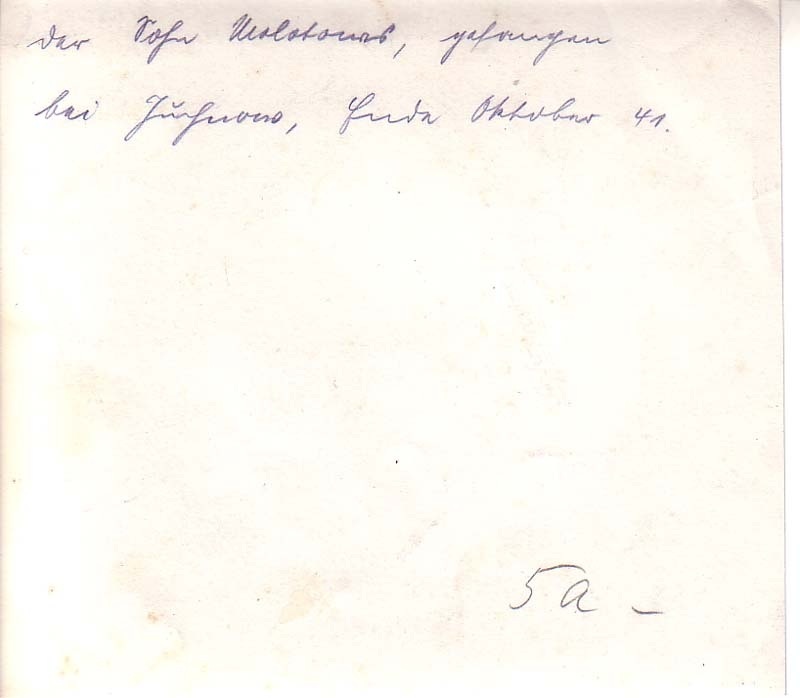 der Sohn Molotows, gefangen
bei Juchnow, Ende Oktober 41.
5a –